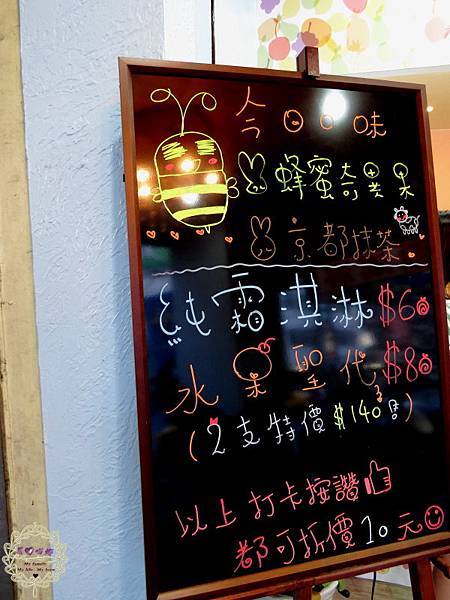 今日口味
蜂蜜奇異果
京都抹茶
純霜淇淋 $60
水果聖代 $80
(2支特價$140)
以上打卡按讚
都可折價10元
My family